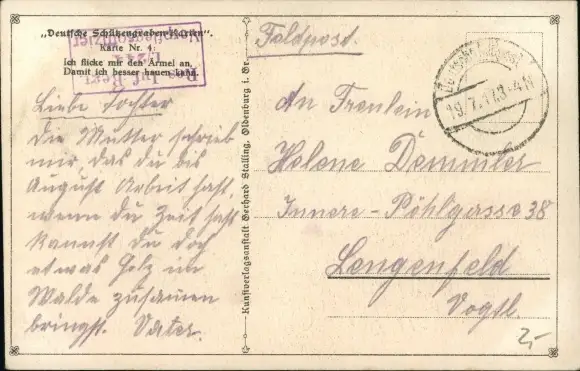 „Deutsche Schützengraben-Karten".
Karte Nr. 4:
Ich flicke mir den Ärmel an,
Damit ich besser hauen kann.
Feldpost.
19.7.17.3-4N
Liebe Tochter
Die Mutter schrieb
mir, das du bis
August Arbeit hast,
wenn du Zeit hast
kannst du doch
etwas Holz im
Walde zusamen
bringst. Vater.
Kunstverlagsanstalt Gerhard Stalling, Oldenburg i. Gr.
An Freulein
Helene Demmler
Innere-Pöhlgasse 38
Lengenfeld
Vogtl.
2,-